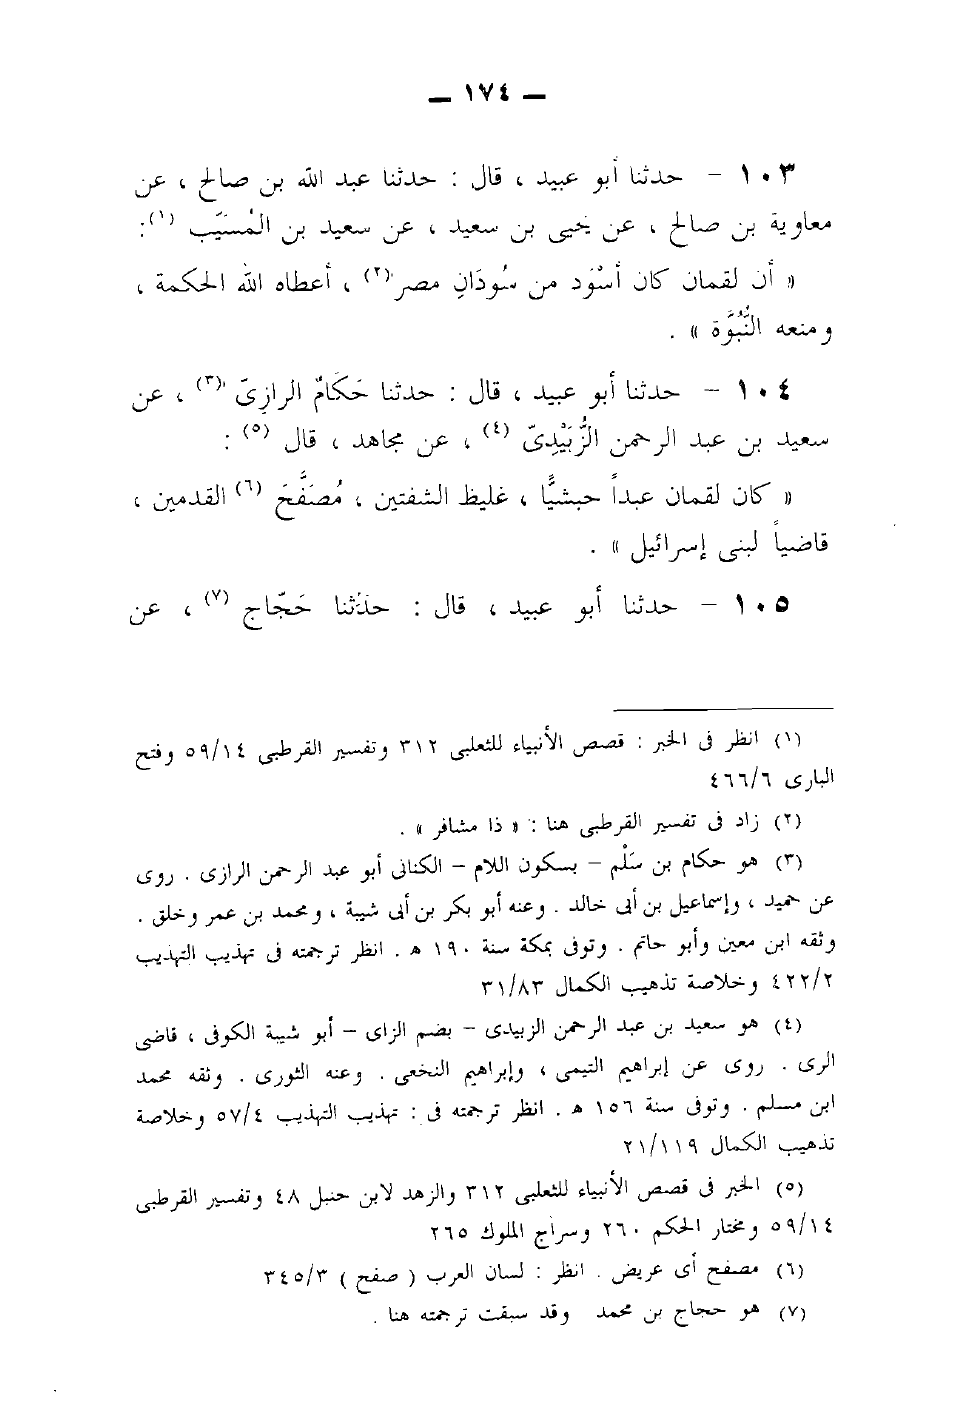 — ١٧٤ —
١٠٣ – حدثنا أبو عبيد ، قال : حدثنا عبد الله بن صالح ، عن
معاوية بن صالح ، عن يحيى بن سعيد ، عن سعيد بن المُسَيَّب (١) :
« أن لقمان كان أسْوَد من سُودَانِ مصر (٢) ، أعطاه الله الحكمة ،
ومنعه النُّبُوَّة » .
١٠٤ – حدثنا أبو عبيد ، قال : حدثنا حَكَامٌ الرازِىّ (٣) ، عن
سعيد بن عبد الرحمن الزُّبَيْدِىّ (٤) ، عن مجاهد ، قال (٥) :
« كان لقمان عبداً حبشيًّا ، غليظ الشفتين ، مُصَفَّحَ (٦) القدمين ،
قاضياً لبنى إسرائيل » .
١٠٥ – حدثنا أبو عبيد ، قال : حدّثنا حَجّاج (٧) ، عن
(١) انظر فى الخبر : قصص الأنبياء للثعلبى ٣١٢ وتفسير القرطبى ٥٩/١٤ وفتح
البارى ٤٦٦/٦
(٢) زاد فى تفسير القرطبى هنا : « ذا مشافر » .
(٣) هو حكام بن سَلْم – بسكون اللام – الكنانى أبو عبد الرحمن الرازى . روى
عن حميد ، وإسماعيل بن أبى خالد . وعنه أبو بكر بن أبى شيبة ، ومحمد بن عمر وخلق .
وثقه ابن معين وأبو حاتم . وتوفى بمكة سنة ١٩٠ هـ . انظر ترجمته فى تهذيب التهذيب
٤٢٢/٢ وخلاصة تذهيب الكمال ٣١/٨٣
(٤) هو سعيد بن عبد الرحمن الزبيدى – بضم الزاى – أبو شيبة الكوفى ، قاضى
الرى . روى عن إبراهيم التيمى ، وإبراهيم النخعى . وعنه الثورى . وثقه محمد
ابن مسلم . وتوفى سنة ١٥٦ هـ . انظر ترجمته فى : تهذيب التهذيب ٥٧/٤ وخلاصة
تذهيب الكمال ٢١/١١٩
(٥) الخبر فى قصص الأنبياء للثعلبى ٣١٢ والزهد لابن حنبل ٤٨ وتفسير القرطبى
٥٩/١٤ ومختار الحكم ٢٦٠ وسراج الملوك ٢٦٥
(٦) مصفح أى عريض . انظر : لسان العرب ( صفح ) ٣٤٥/٣
(٧) هو حجاج بن محمد وقد سبقت ترجمته هنا .